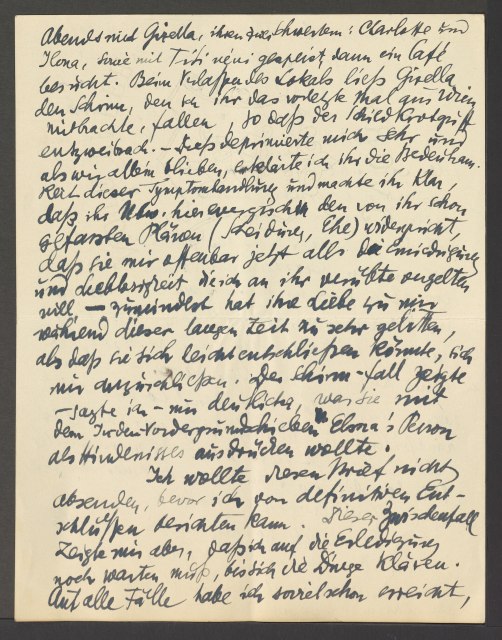 Abends mit Gisella, ihren zwei Schwestern: Charlotte und
Ilona, sowie mit Titi néni gespeist, dann ein Café
besucht. Beim Verlassen des Lokals ließ Gisella
den Schirm, den ich ihr das vorletzte Mal aus Wien
mitbrachte, fallen, so daß der Schildkrotgriff
entzweibrach. – Dieß deprimierte mich sehr und
als wir allein blieben, erklärte ich ihr die Bedeutsam-
keit dieser Symptomhandlung und machte ihr klar,
daß ihr Ubw. hier energisch den von ihr schon
gefassten Plänen (Scheidung, Ehe) widerspricht,
daß sie mir offenbar jetzt all die Erniedrigung
und Lieblosigkeit die ich an ihr verübte entgelten
will, – zumindest hat ihre Liebe zu mir
während dieser langen Zeit zu sehr gelitten,
als daß sie sich leicht entschließen könnte, sich
mir anzuschließen. Der Schirm-fall zeigte
– sagte ich – nur deutlich, was sie mit
dem In-den-Vordergrundschieben Elma's Person
als Hindernisses ausdrücken wollte.
Ich wollte diesen Brief nicht
absenden, bevor ich von definitiven Ent-
schlüssen berichten kann. Dieser Zwischenfall
zeigte mir aber, daß ich auf die Erledigung
noch warten muß, bis sich die Dinge klären.
Auf alle Fälle habe ich soviel schon erreicht,